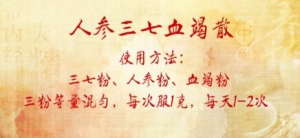 人参三七血竭散
使用方法：
三七粉、人参粉、血竭粉
三粉等量混匀，每次服1克，每天1-2次